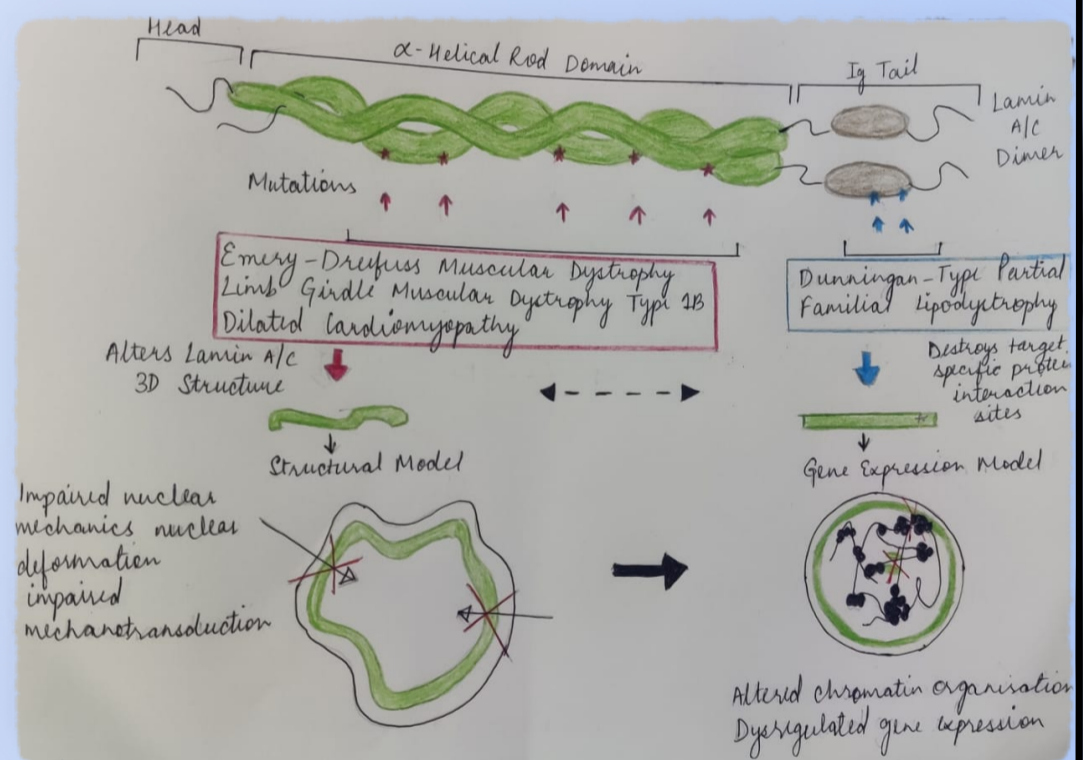 Head
α-Helical Rod Domain
Ig Tail
Lamin
A/C
Dimer
Mutations
Emery-Dreifuss Muscular Dystrophy
Limb Girdle Muscular Dystrophy Type 1B
Dilated Cardiomyopathy
Dunningan-Type Partial
Familial Lipodystrophy
Alters Lamin A/C
3D Structure
Destroys target
specific protei
interaction
sites
Structural Model
Gene Expression Model
Impaired nuclear
mechanics nuclear
deformation
impaired
mechanotransduction
Altered chromatin organisation
Dysregulated gene expression